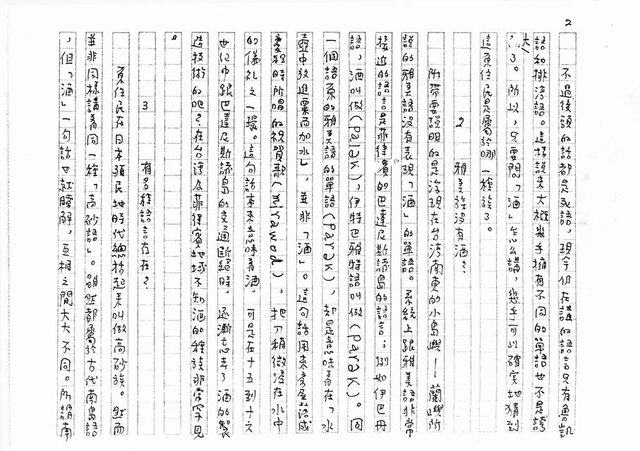 2
不過後頭的話都是死語，現今仍在講的語言只有魯凱
語和排灣語。這樣說來大概幾乎擁有不同的單語也不是誇
大了。所以，只要問「酒」怎麼講，幾乎可以確定地猜到
這原住民是屬於哪一種族了。
2 雅美族沒有酒？
附帶要說明的是浮現在台湾南東的小島嶼——蘭嶼所
說的雅美語沒有表現「酒」的單語。系統上跟雅美語非常
接近的語言是菲律賓的巴達尼斯諸島的語言；例如伊巴丹
語，酒叫做(Palək)，伊特巴雅特語叫做(Palak)。同
一個語系的雅美語的單語(Palək)，却是意味着在「水
壺中放進粟而加水」，並非「酒」。這句話用來房屋落成
慶祝時所唱的祝賀歌(mirawod)，把刀稍微浸在水中
的儀礼之一環。這句話本來意味着酒。可是在十五到十六
世紀中跟巴達尼斯諸島的交通斷絕時，逐漸忘去了酒的製
造技術的吧？在台湾及菲律賓地域不知酒的種族非常罕見
。
3 有多種語言存在？
原住民在日本殖民地時代總括起來叫做高砂族。然而
並非同樣講着同一種「高砂語」。雖然都屬於古代南島語
，但「酒」一句話也就瞭解，互相之間大大不同。所謂南